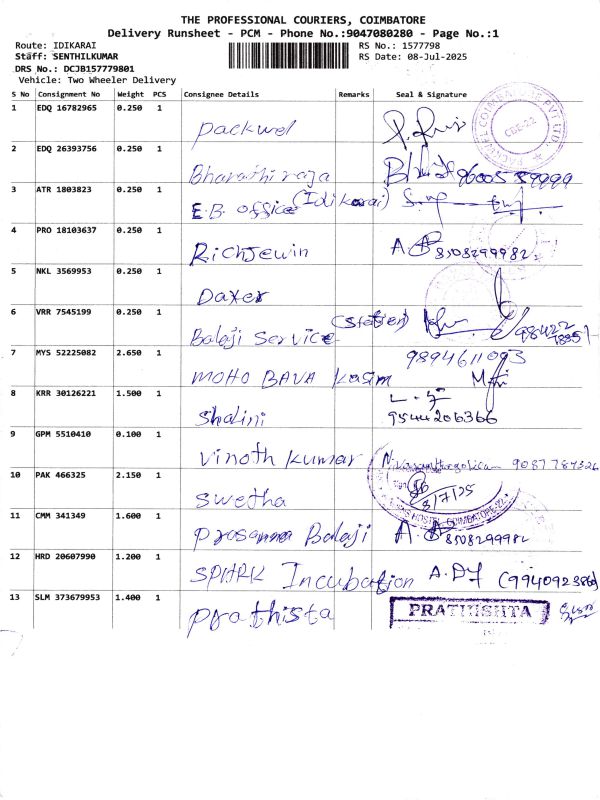 THE PROFESSIONAL COURIERS, COIMBATORE
Delivery Runsheet - PCM - Phone No.:9047080280 - Page No.:1
Route: IDIKARAI RS No.: 1577798
Staff: SENTHILKUMAR RS Date: 08-Jul-2025
DRS No.: DCJB157779801
Vehicle: Two Wheeler Delivery
S No Consignment No Weight PCS Consignee Details Remarks Seal & Signature
1 EDQ 16782965 0.250 1 Packwel
2 EDQ 26393756 0.250 1 Bharathi raja 9600589999
3 ATR 1803823 0.250 1 E.B. office (Idikarai)
4 PRO 18103637 0.250 1 Richjewin 8508299982
5 NKL 3569953 0.250 1 Daxer
6 VRR 7545199 0.250 1 Balaji Service (Station) 98422
7 MYS 52225082 2.650 1 MOHO BAVA Kasim 9894611093
8 KRR 30126221 1.500 1 Shalini 9544206366
9 GPM 5510410 0.100 1 Vinoth Kumar 9087787326
10 PAK 466325 2.150 1 Swetha 8/7/25
11 CMM 341349 1.600 1 Prosanna Balaji 8508299982
12 HRD 20607990 1.200 1 SPARK Incubation
13 SLM 373679953 1.400 1 Prathista PRATHISHTA